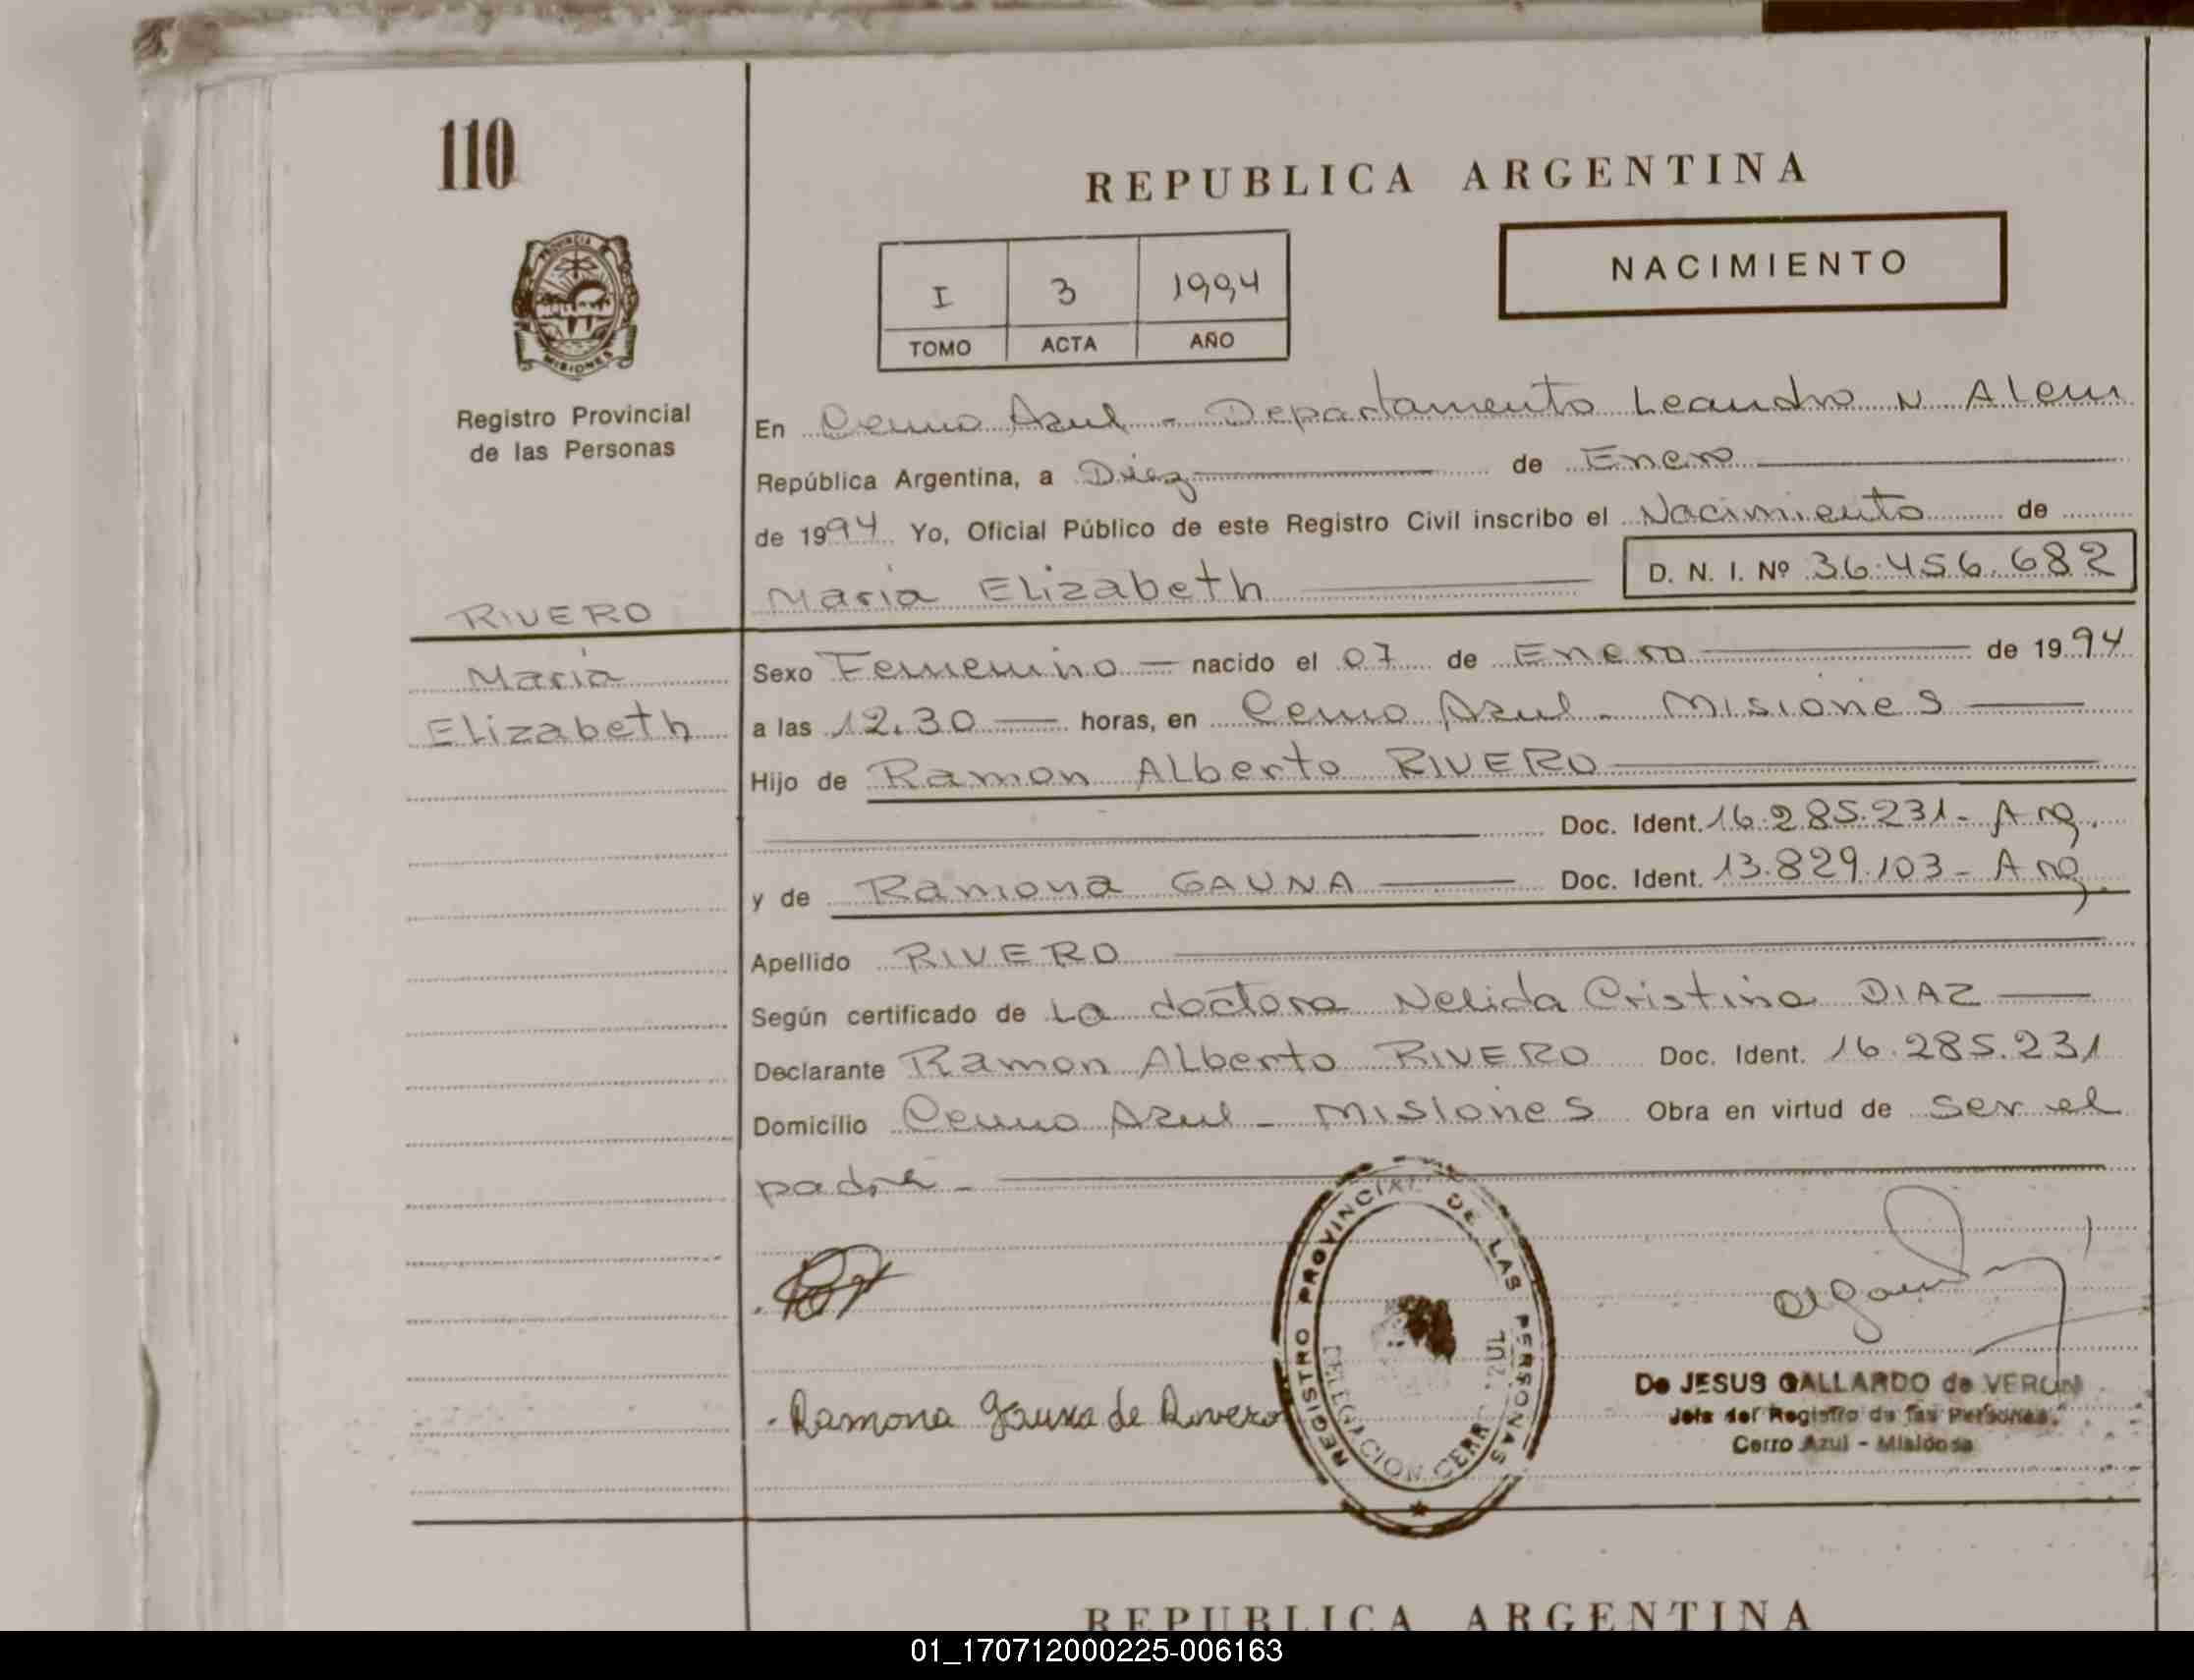 110
REPUBLICA ARGENTINA
NACIMIENTO
I 3 1994
TOMO ACTA AÑO
PROVINCIA
MISIONES
Registro Provincial
de las Personas
En Cerro Azul - Departamento Leandro N Alem
República Argentina, a Diez de Enero
de 1994 Yo, Oficial Público de este Registro Civil inscribo el Nacimiento de
Maria Elizabeth D. N. I. Nº 36.456.682
RIVERO
Maria
Elizabeth
Sexo Femenino nacido el 07 de Enero de 1994
a las 12.30 horas, en Cerro Azul - Misiones
Hijo de Ramon Alberto RIVERO
Doc. Ident. 16.285.231 - Arg.
y de Ramona GAUNA Doc. Ident. 13.829.103 - Arg.
Apellido RIVERO
Según certificado de La doctora Nelida Cristina DIAZ
Declarante Ramon Alberto RIVERO Doc. Ident. 16.285.231
Domicilio Cerro Azul - Misiones Obra en virtud de ser el
padre -
REGISTRO PROVINCIAL DE LAS PERSONAS
DELEGACION CERR ZUL
Ramona Gauna de Rivero
De JESUS GALLARDO de VERON
Jefe del Registro de las Personas
Cerro Azul - Misiones
REPUBLICA ARGENTINA
01_170712000225-006163